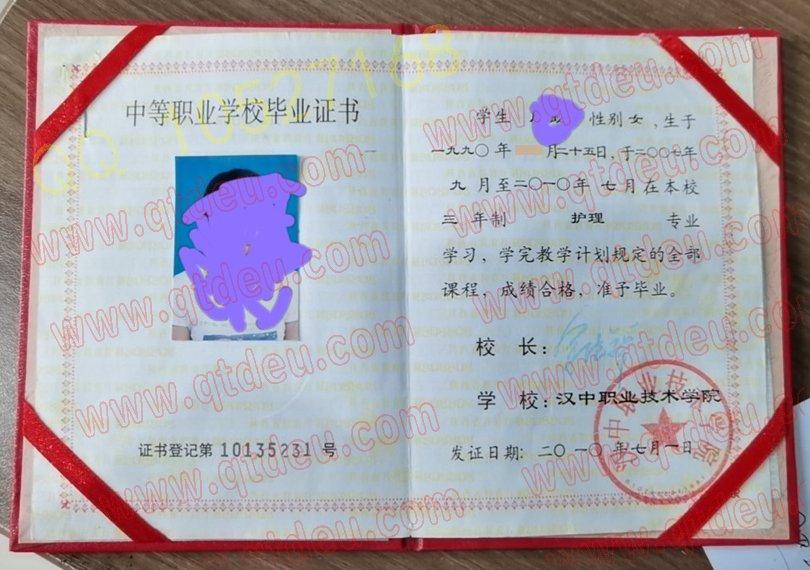 中等职业学校毕业证书
证书登记第 10135231 号
学生 性别 女 , 生于
一九九〇 年 月二十五日, 于二〇〇七年
九 月至二〇一〇年 七 月在本校
三 年制 护理 专业
学习, 学完教学计划规定的全部
课程, 成绩合格, 准予毕业。
校 长:
学 校: 汉中职业技术学院
发证日期: 二〇一〇 年七月一日
汉中职业技术学院
www.qtdeu.com
www.qtdeu.com
www.qtdeu.com
www.qtdeu.com
www.qtdeu.com
www.qtdeu.com
www.qtdeu.com
www.qtdeu.com